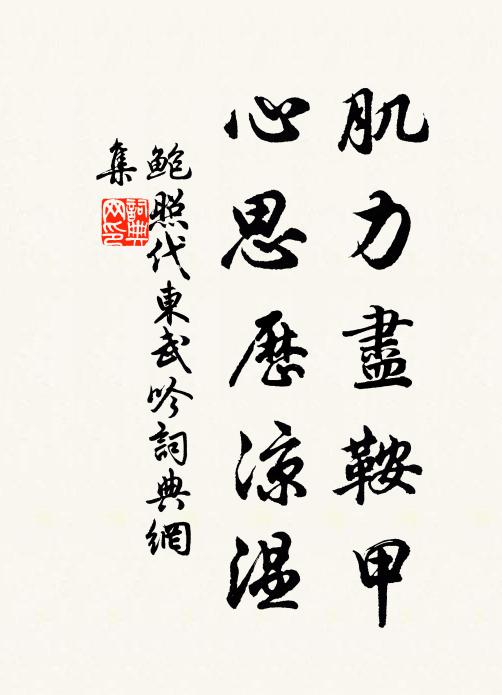 肌力盡鞍甲
心思歷涼温
鮑照代東武吟詞典網
集
詞典
网印